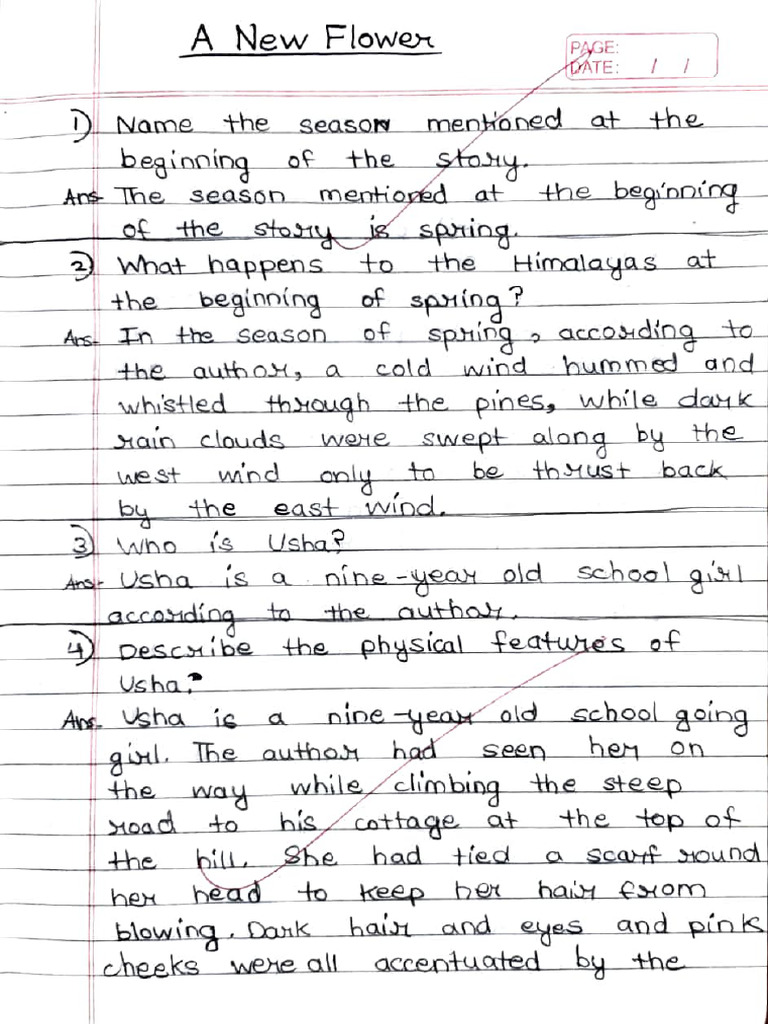 A New Flower
PAGE:
DATE: / /
1) Name the season mentioned at the
beginning of the story.
Ans- The season mentioned at the beginning
of the story is spring.
2) What happens to the Himalayas at
the beginning of spring?
Ans- In the season of spring, according to
the author, a cold wind hummed and
whistled through the pines, while dark
rain clouds were swept along by the
west wind only to be thrust back
by the east wind.
3) Who is Usha?
Ans- Usha is a nine-year old school girl
according to the author.
4) Describe the physical features of
Usha?
Ans- Usha is a nine-year old school going
girl. The author had seen her on
the way while climbing the steep
road to his cottage at the top of
the hill. She had tied a scarf round
her head to keep her hair from
blowing. Dark hair and eyes and pink
cheeks were all accentuated by the